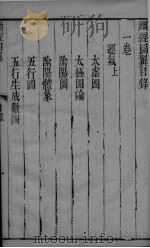 類經圖翼目錄
一卷
運氣上
太虛圖
太極圖論
陰陽圖
陰陽體象
五行圖
五行生成數圖